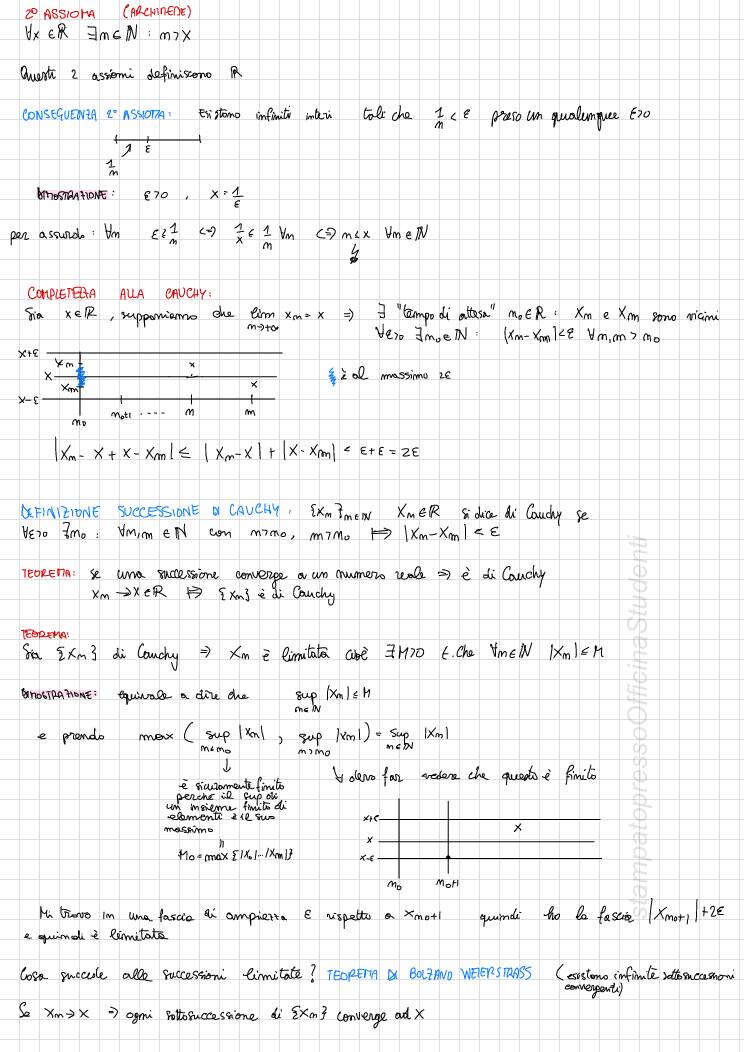 2° ASSIOMA (ARCHIMEDE)
∀x ∈ ℝ ∃n ∈ ℕ : n > x
Questi 2 assiomi definiscono ℝ
CONSEGUENZA 2° ASSIOMA: Esistono infiniti interi tali che 1/n < ε preso un qualunque ε>0
ε
1/n
DIMOSTRAZIONE: ε>0 , x = 1/ε
per assurdo: ∀n ε ≤ 1/n <=> 1/x ≤ 1/n ∀n <=> n ≤ x ∀n ∈ ℕ
COMPLETEZZA ALLA CAUCHY:
Sia x ∈ ℝ , supponiamo che lim xn = x => ∃ "tempo di attesa" n0 ∈ ℝ : xn e xm sono vicini
n→+∞ ∀ε>0 ∃n0 ∈ ℕ : |xn-xm|<ε ∀n,m > n0
x+ε
xn x
x
xm x
x-ε
n0 n0+1 .... n m
è al massimo 2ε
|xn - x + x - xm| ≤ |xn-x| + |x-xm| < ε+ε = 2ε
DEFINIZIONE SUCCESSIONE DI CAUCHY: {xn}n∈ℕ xn ∈ ℝ si dice di Cauchy se
∀ε>0 ∃n0 : ∀n,m ∈ ℕ con n>n0, m>n0 => |xn-xm| < ε
TEOREMA: se una successione converge a un numero reale => è di Cauchy
xn → x ∈ ℝ => {xn} è di Cauchy
TEOREMA:
Sia {xn} di Cauchy => xn è limitata cioè ∃M>0 t.che ∀n∈ℕ |xn| ≤ M
DIMOSTRAZIONE: equivale a dire che sup |xn| ≤ M
n∈ℕ
e prendo max ( sup |xn| , sup |xn| ) = sup |xn|
n≤n0 n>n0 n∈ℕ
è sicuramente finito
perché il sup di
un insieme finito di
elementi è il suo
massimo
=
M0 = max {|x0|...|xn|}
devo far vedere che questo è finito
x+ε
x
x
x-ε
n0 n0+1
Mi trovo in una fascia di ampiezza ε rispetto a xn0+1 quindi ho la fascia |xn0+1|+2ε
e quindi è limitata
Cosa succede alle successioni limitate? TEOREMA DI BOLZANO WEIERSTRASS (esistono infinite sottosuccessioni
convergenti)
Se xn → x => ogni sottosuccessione di {xn} converge ad x
stampatopressoOfficinaStudenti